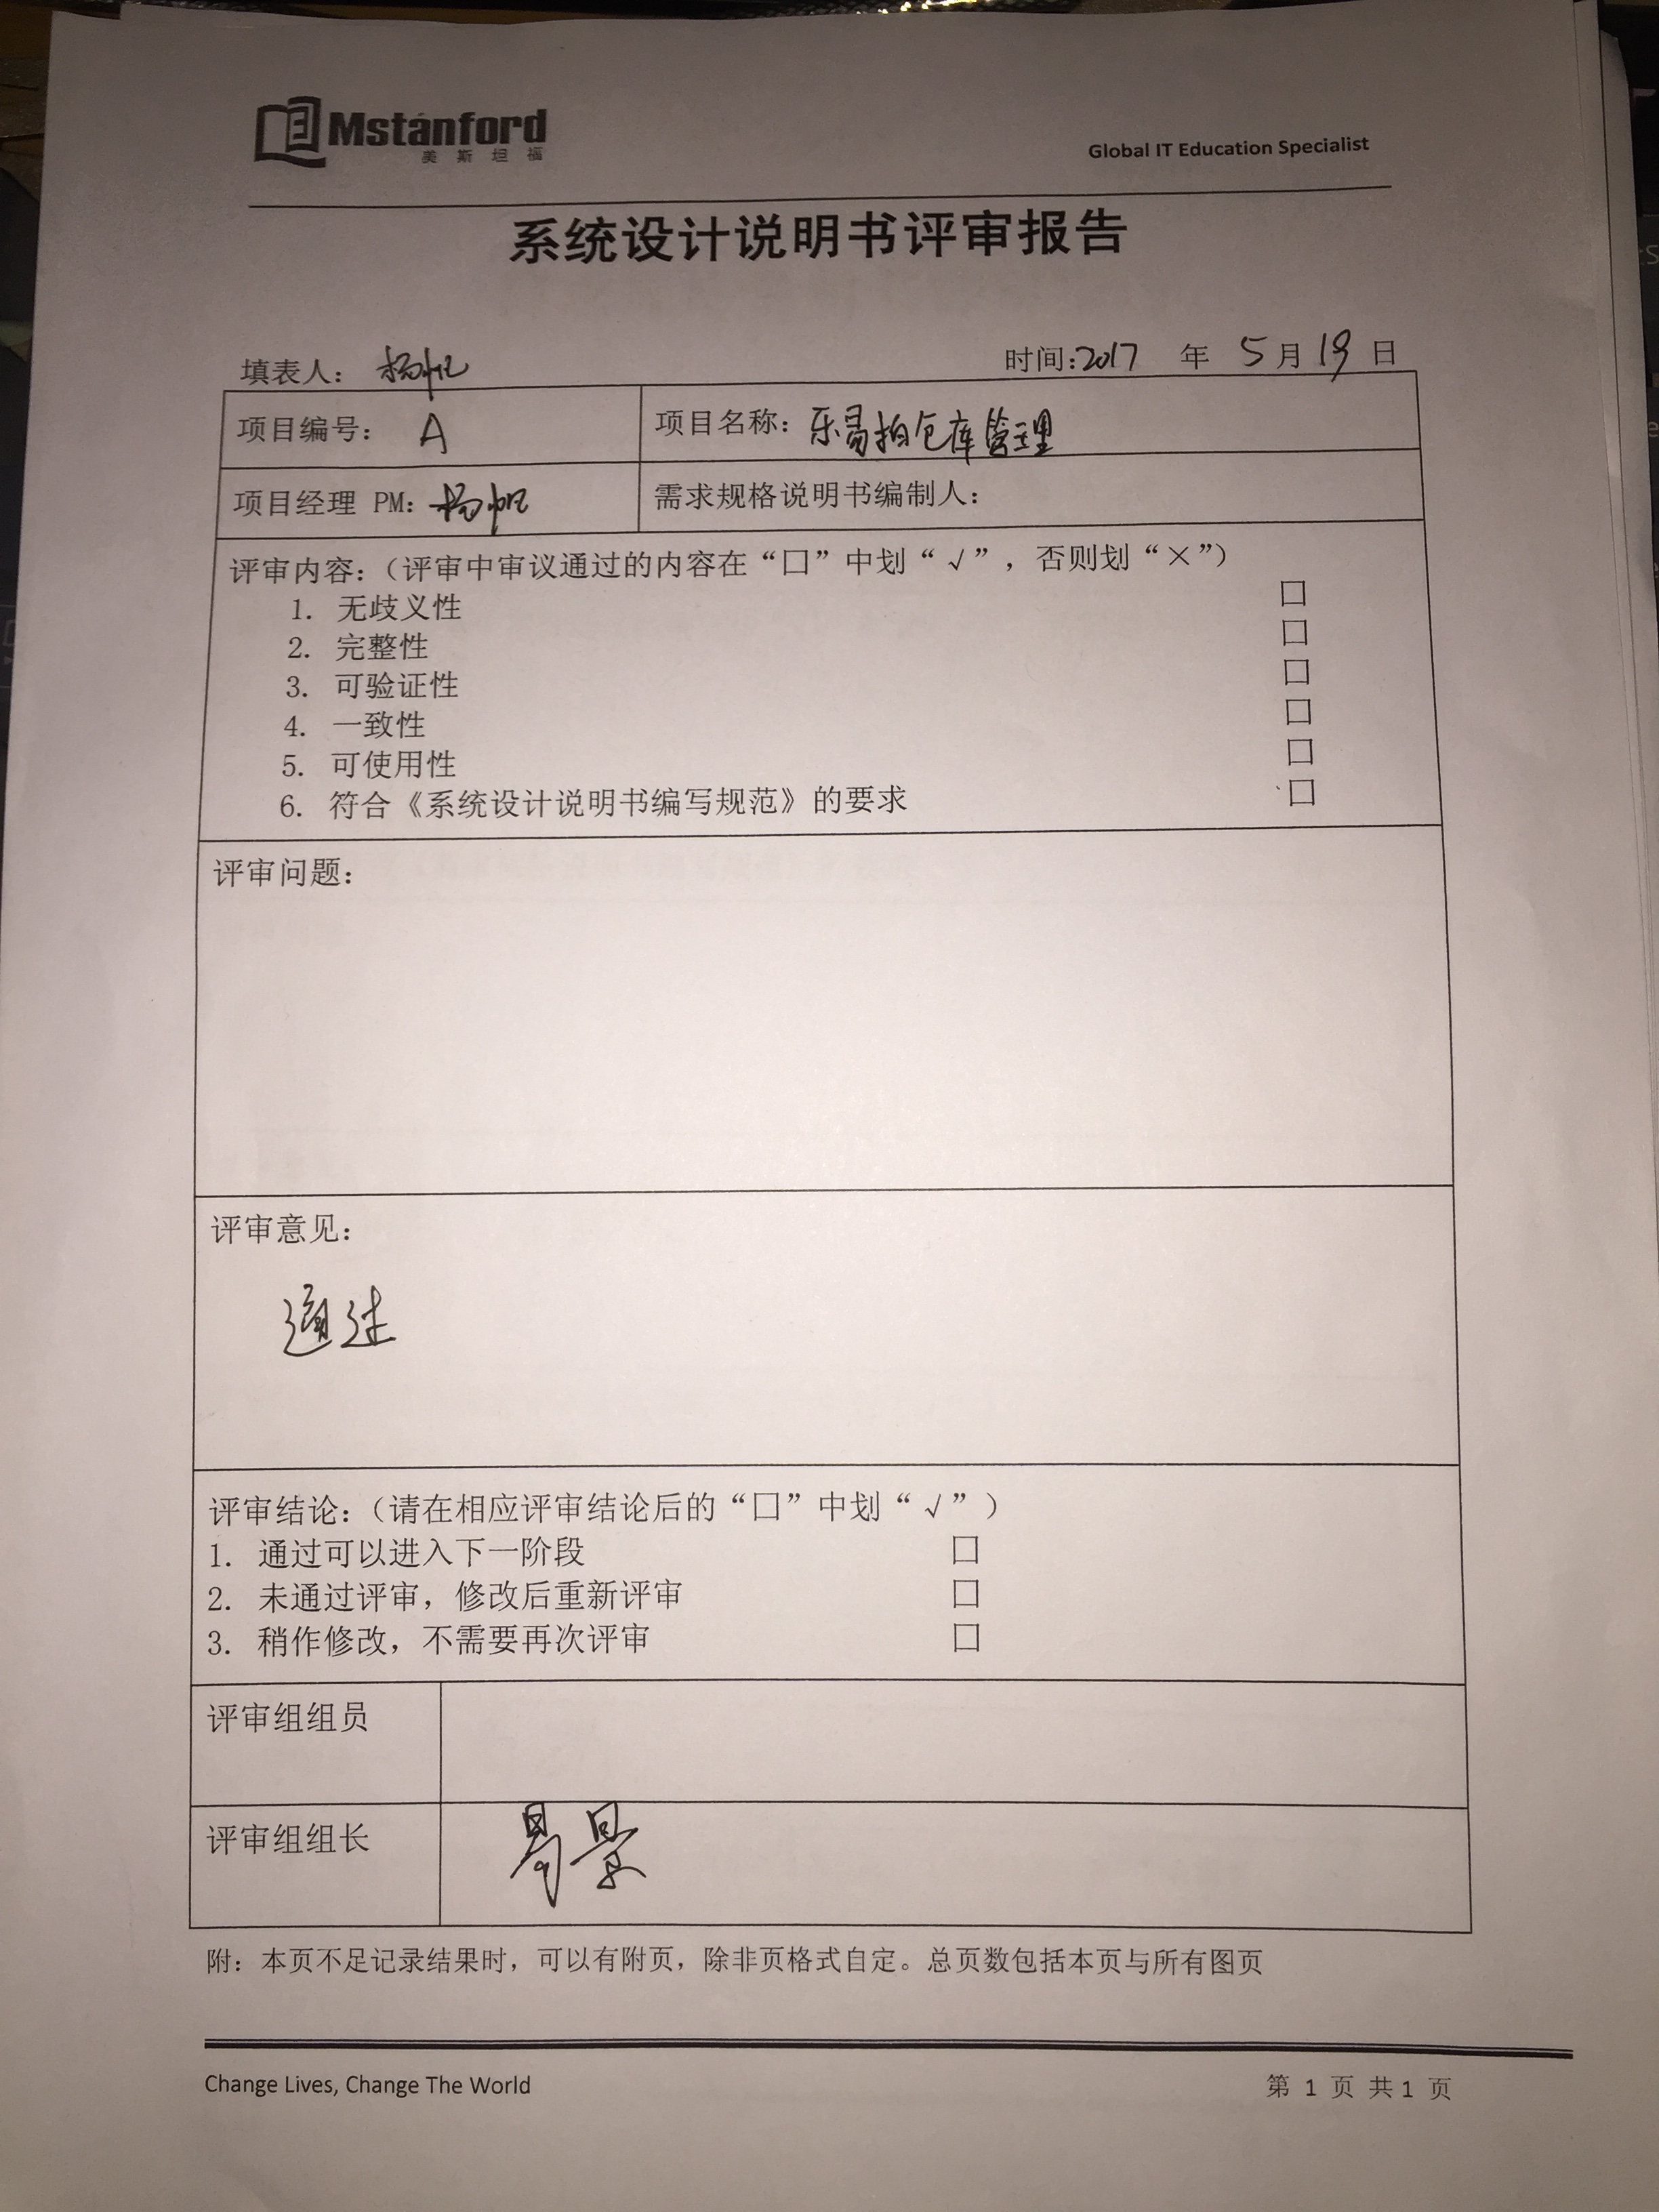 Mstanford
美斯坦福
Global IT Education Specialist
系统设计说明书评审报告
填表人： 杨帆
时间:2017 年 5月19日
项目编号： A
项目名称：乐易拍仓库管理
项目经理 PM：杨帆
需求规格说明书编制人：
评审内容：（评审中审议通过的内容在“口”中划“√”，否则划“×”）
1. 无歧义性 口
2. 完整性 口
3. 可验证性 口
4. 一致性 口
5. 可使用性 口
6. 符合《系统设计说明书编写规范》的要求 口
评审问题：
评审意见：
通过
评审结论：（请在相应评审结论后的“口”中划“√”）
1. 通过可以进入下一阶段 口
2. 未通过评审，修改后重新评审 口
3. 稍作修改，不需要再次评审 口
评审组组员
评审组组长 易景
附：本页不足记录结果时，可以有附页，除非页格式自定。总页数包括本页与所有图页
Change Lives, Change The World
第 1 页 共1 页